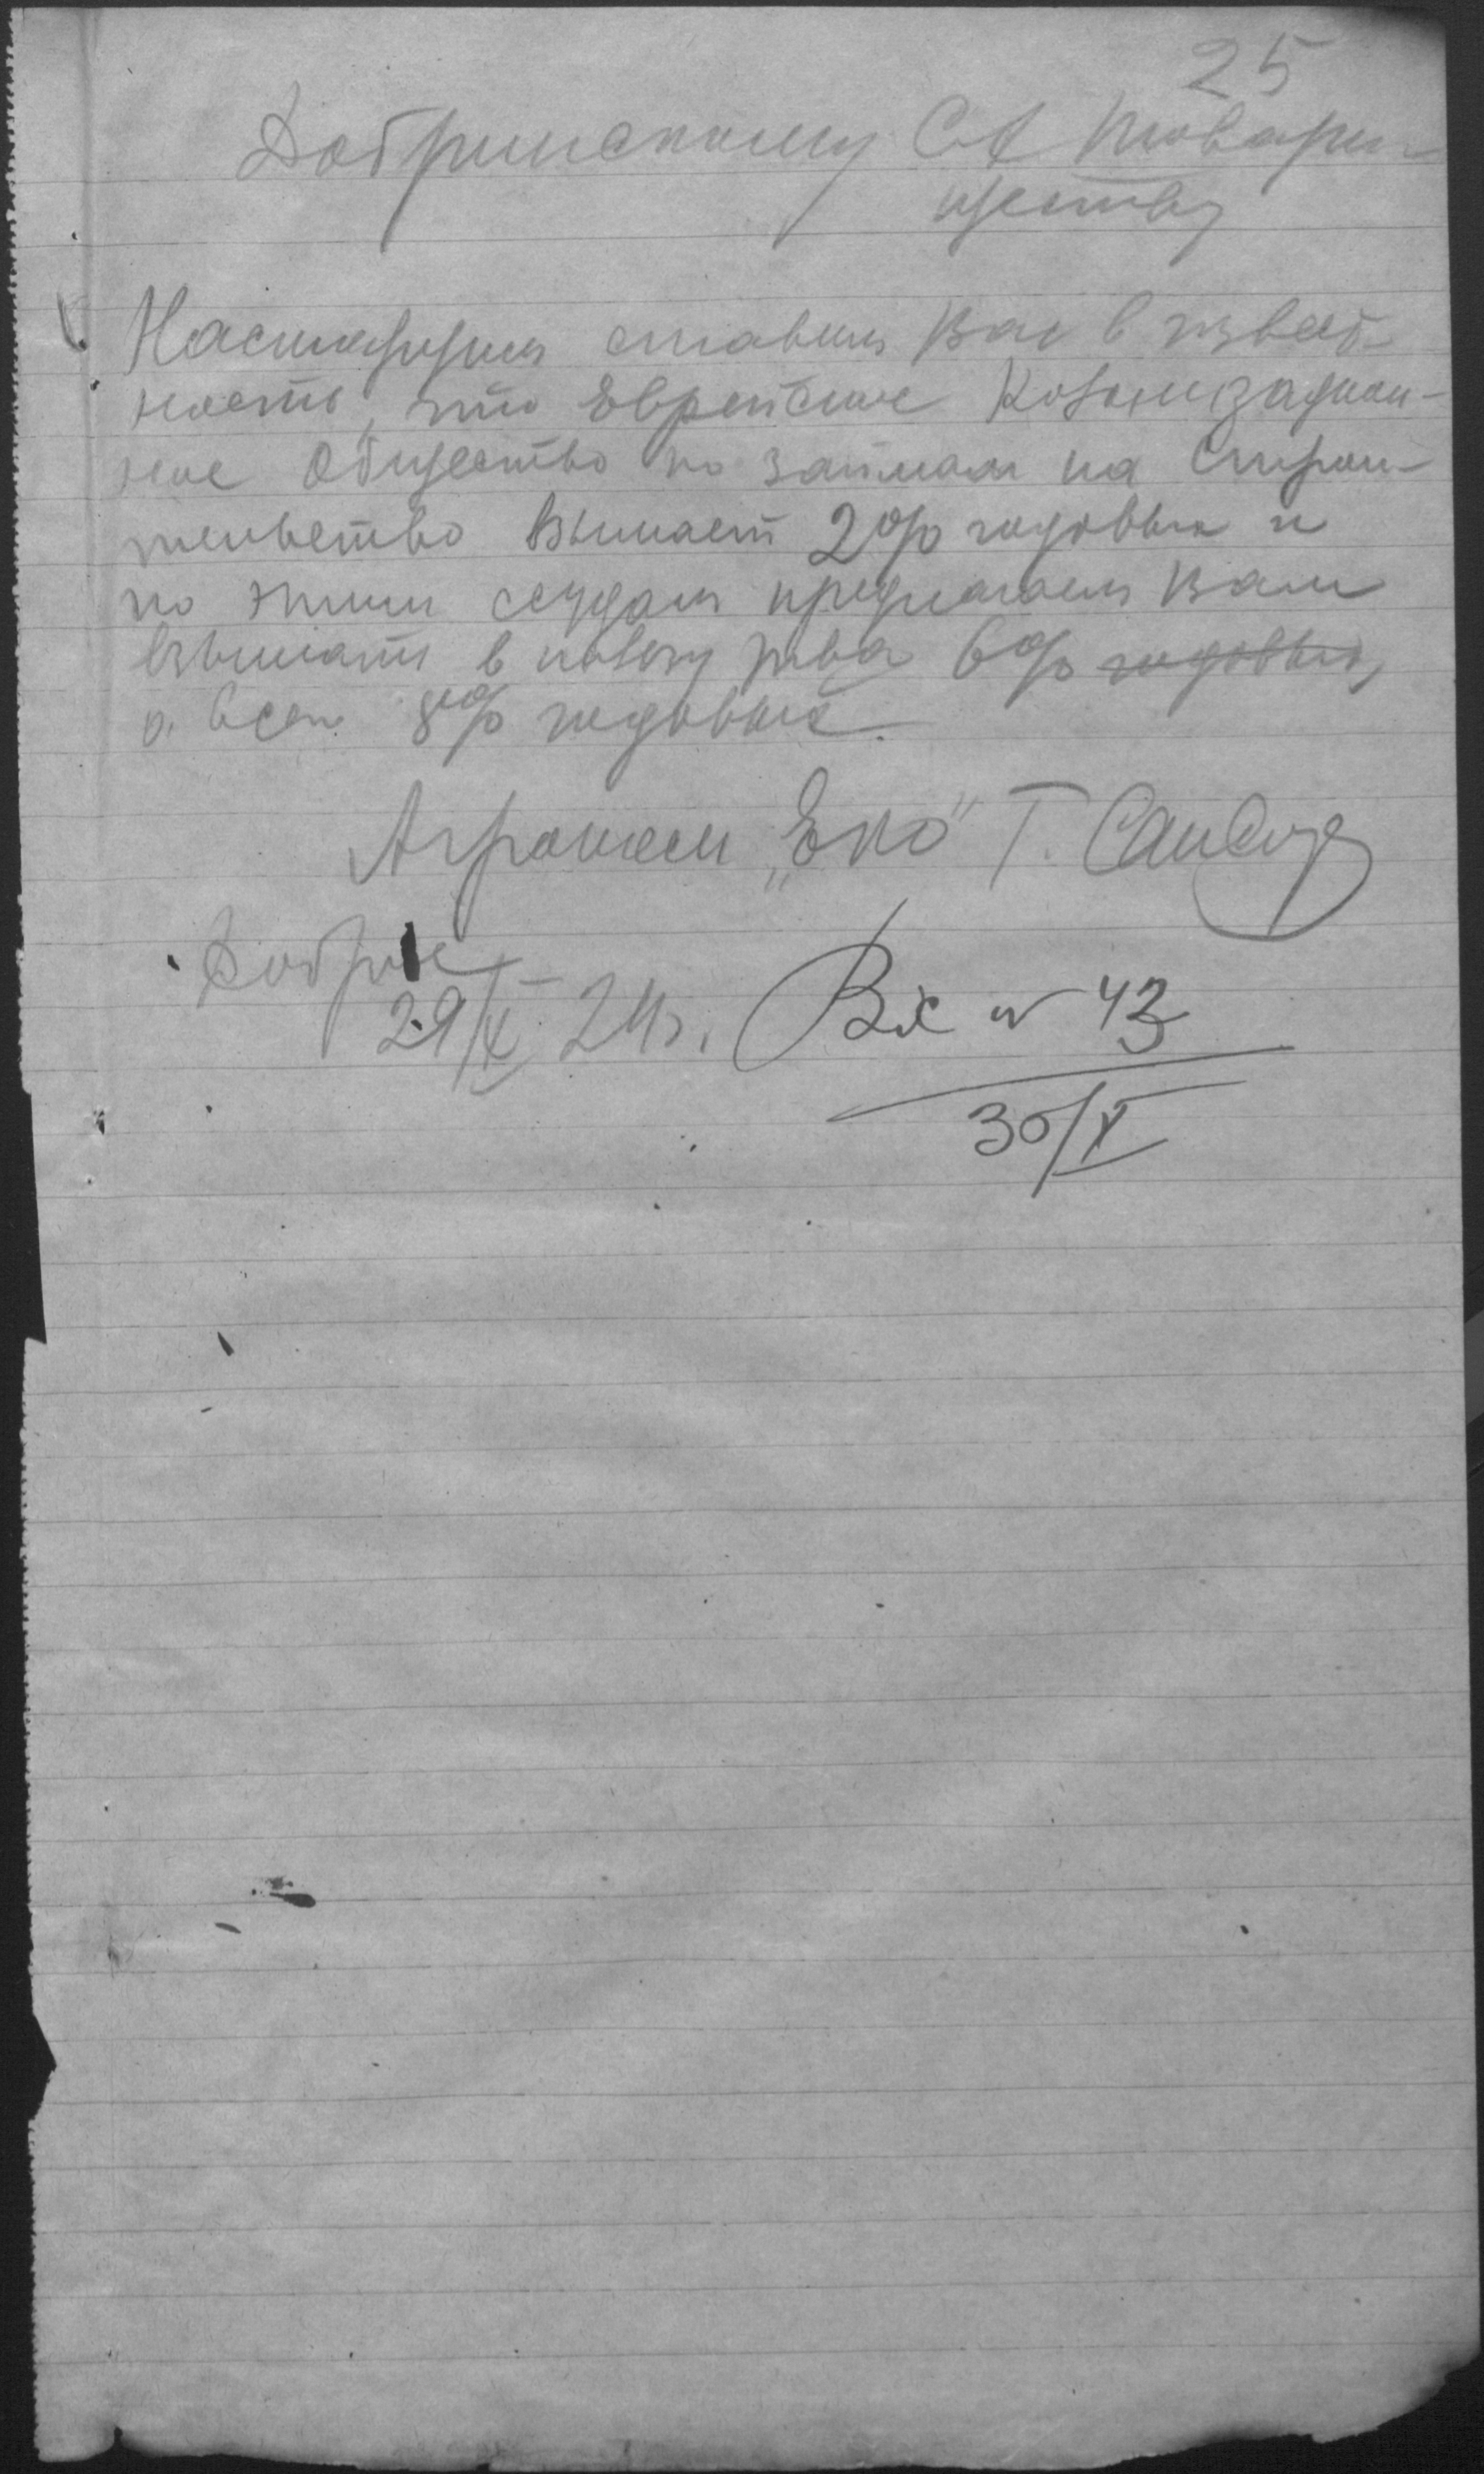 25
Добринскому С.Х. товари-
ществу
Настоящим ставим Вас в извест-
ность, что Еврейское Колонизацион-
ное Общество по займам на Строи-
тельство взымает 2% годовых и
по этим ссудам предлагаем Вам
взымать в пользу т-ва 6% годовых,
а всего 8% годовых.
Агроном „ЕКО" Г.
Доброе
29/X 24г. Вх № 43
30/X